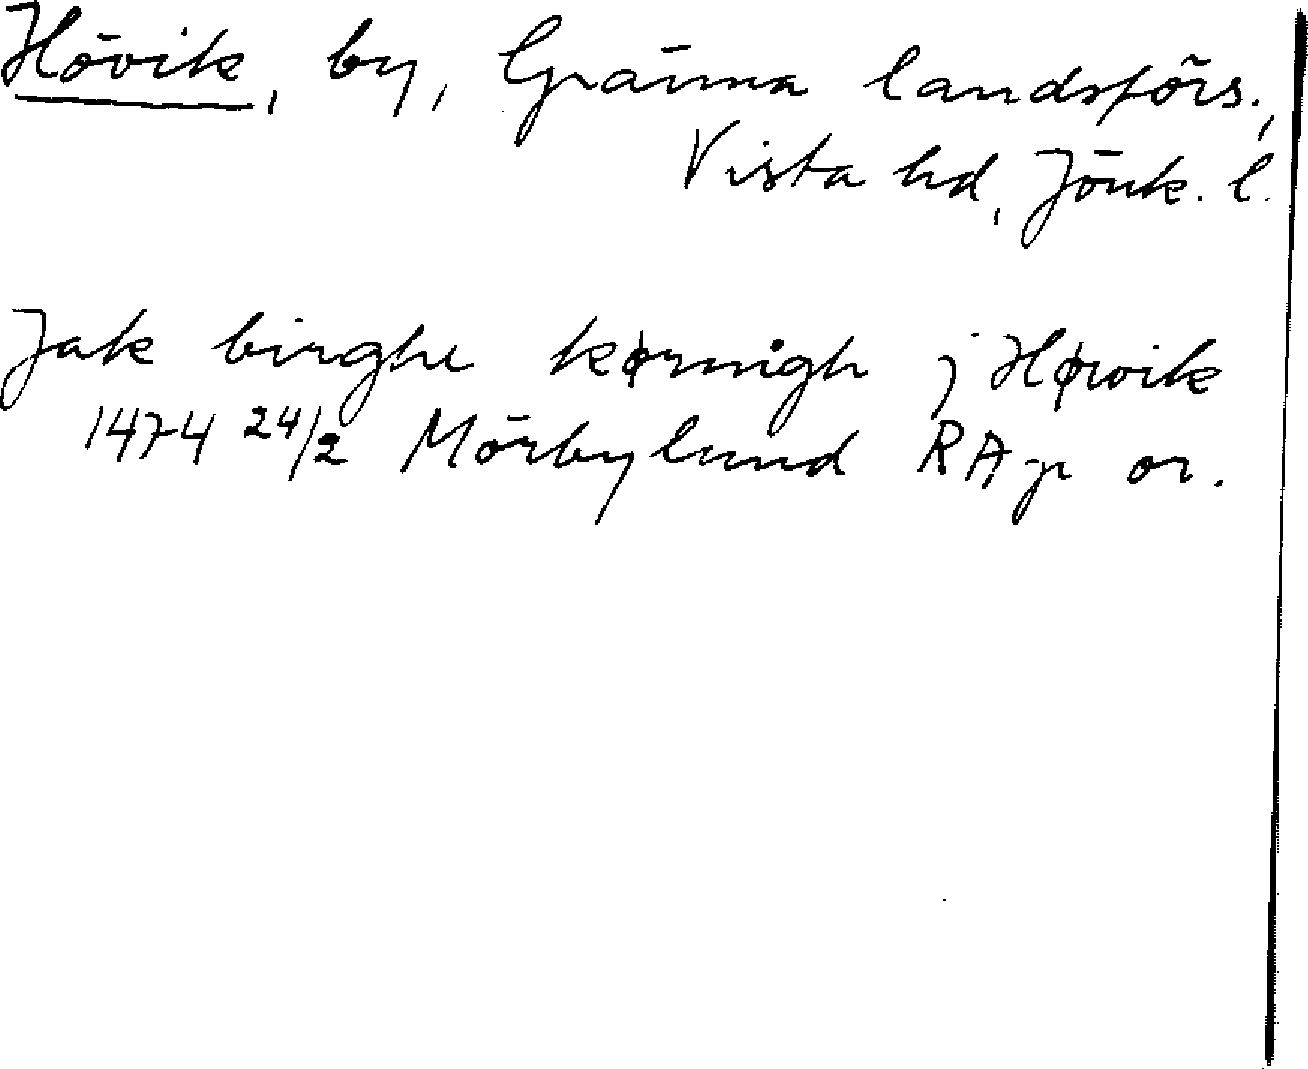 Hövik, by, Gränna landsförs.,
Vista hd, Jönk. l.
Jak birghe kørnigh j Høwik
1474 24/2 Mörbylund RAp or.